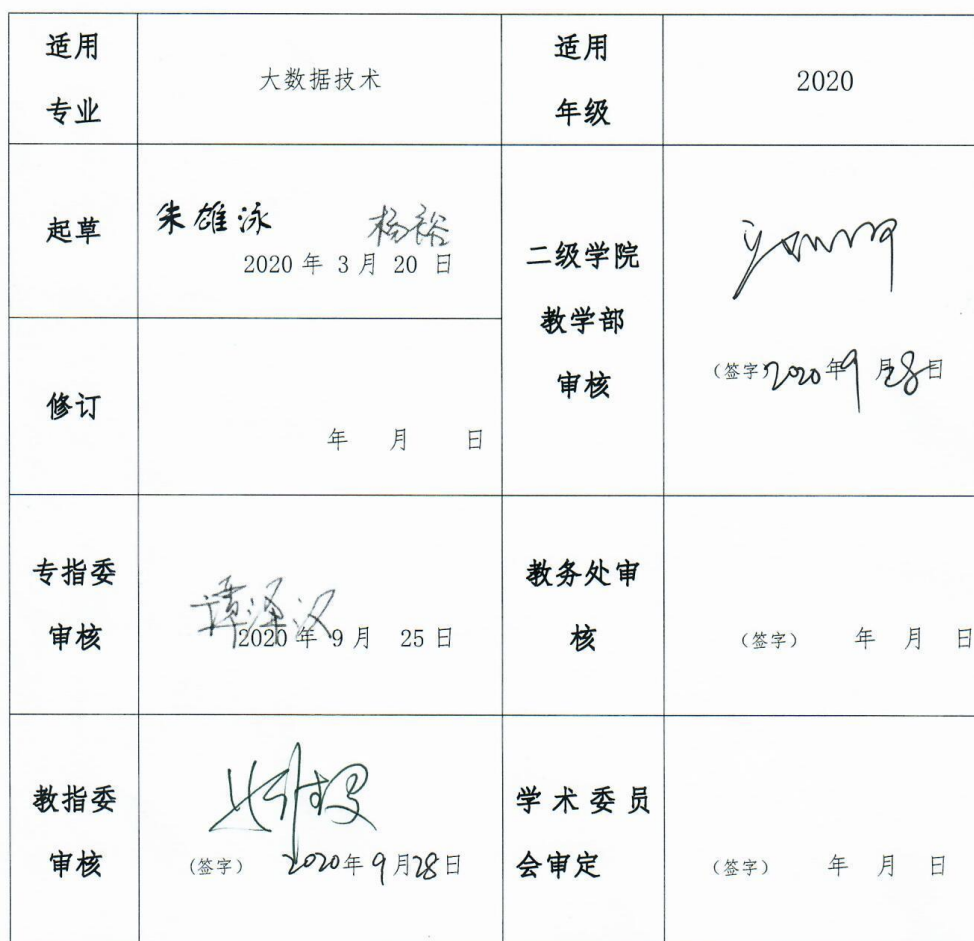 适用
专业
大数据技术
适用
年级
2020
起草
朱雄泳 杨裕
2020 年 3 月 20 日
二级学院
教学部
审核
(签字) 2020 年 9 月 28 日
修订
年 月 日
专指委
审核
谭泽汉
2020 年 9 月 25 日
教务处审
核
(签字) 年 月 日
教指委
审核
(签字) 2020 年 9 月 28 日
学术委员
会审定
(签字) 年 月 日